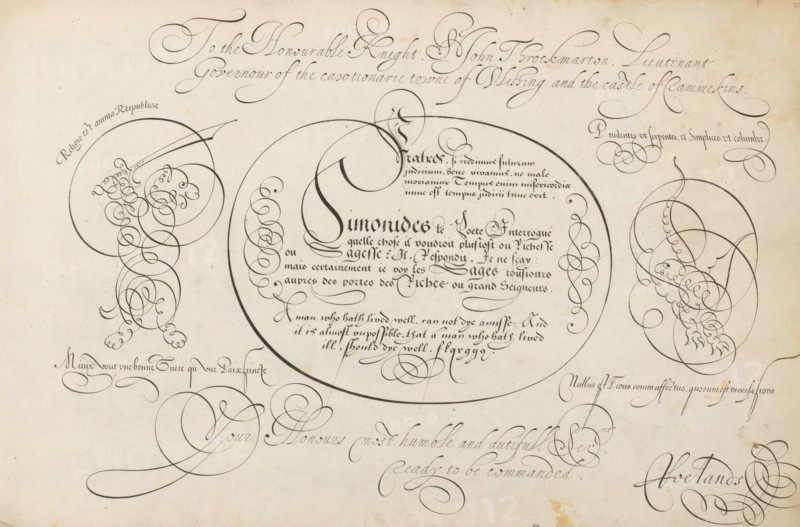 To the Honourable Knight, Sr John Throckmarton, Lieutinant
Governour of the cautionarie towne of Vlishing and the castle of Rammekins.
Religio est anima Reipublicæ
Prudentes vt serpentes, et Simplices vt columbæ
Fratres, si credimus futurum
judicium, bene vivamus, ne male
moriamur Tempus enim misericordiæ
nunc est tempus judicii tunc erit.
Simonides le Poete Interrogué
quelle chose il voudroit plustost ou Richesse
ou Sagesse: Il Respondit, Je ne scay:
mais certainement ie voy les Sages tousiours
aupres des portes des Riches ou grand Seigneurs.
A man who hath lived well, can not dye amisse: And
it is almost unpossible, that a man who hath lived
ill, should dye well.
Mieux vaut une bonne Guere qu'une Paix
Nullus est
quorum est diversa
Your Honours most humble and dutifull Ser:
Ready to be commanded.